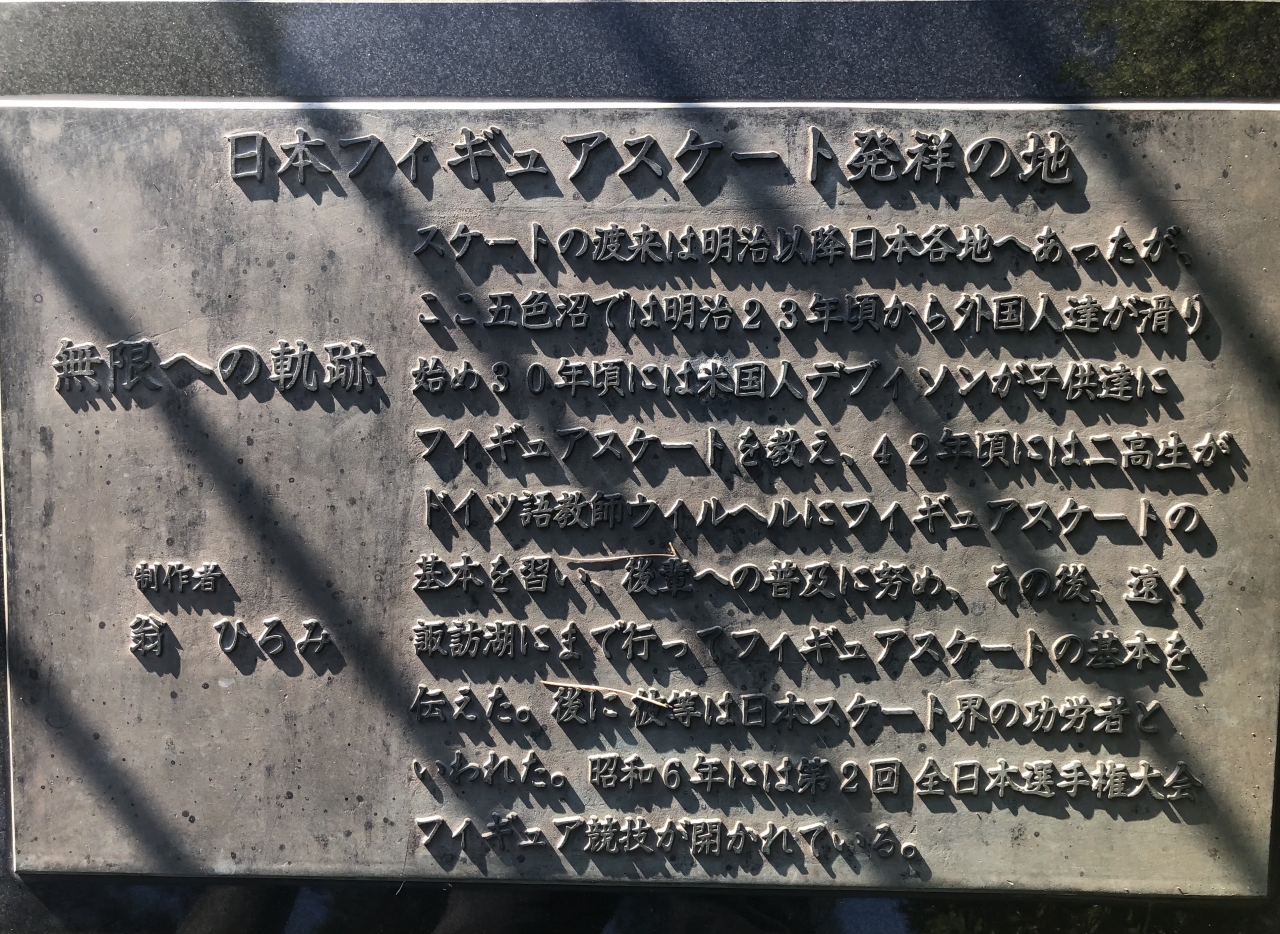 日本フィギュアスケート発祥の地
無限への軌跡
制作者
翁 ひろみ
スケートの渡来は明治以降日本各地へあったが、
ここ五色沼では明治23年頃から外国人達が滑り
始め30年頃には米国人デブイソンが子供達に
フィギュアスケートを教え、42年頃には二高生が
ドイツ語教師ウィルヘルにフィギュアスケートの
基本を習い、後輩への普及に努め、その後、遠く
諏訪湖にまで行ってフィギュアスケートの基本を
伝えた。後に彼等は日本スケート界の功労者と
いわれた。昭和6年には第2回全日本選手権大会
フィギュア競技が開かれている。